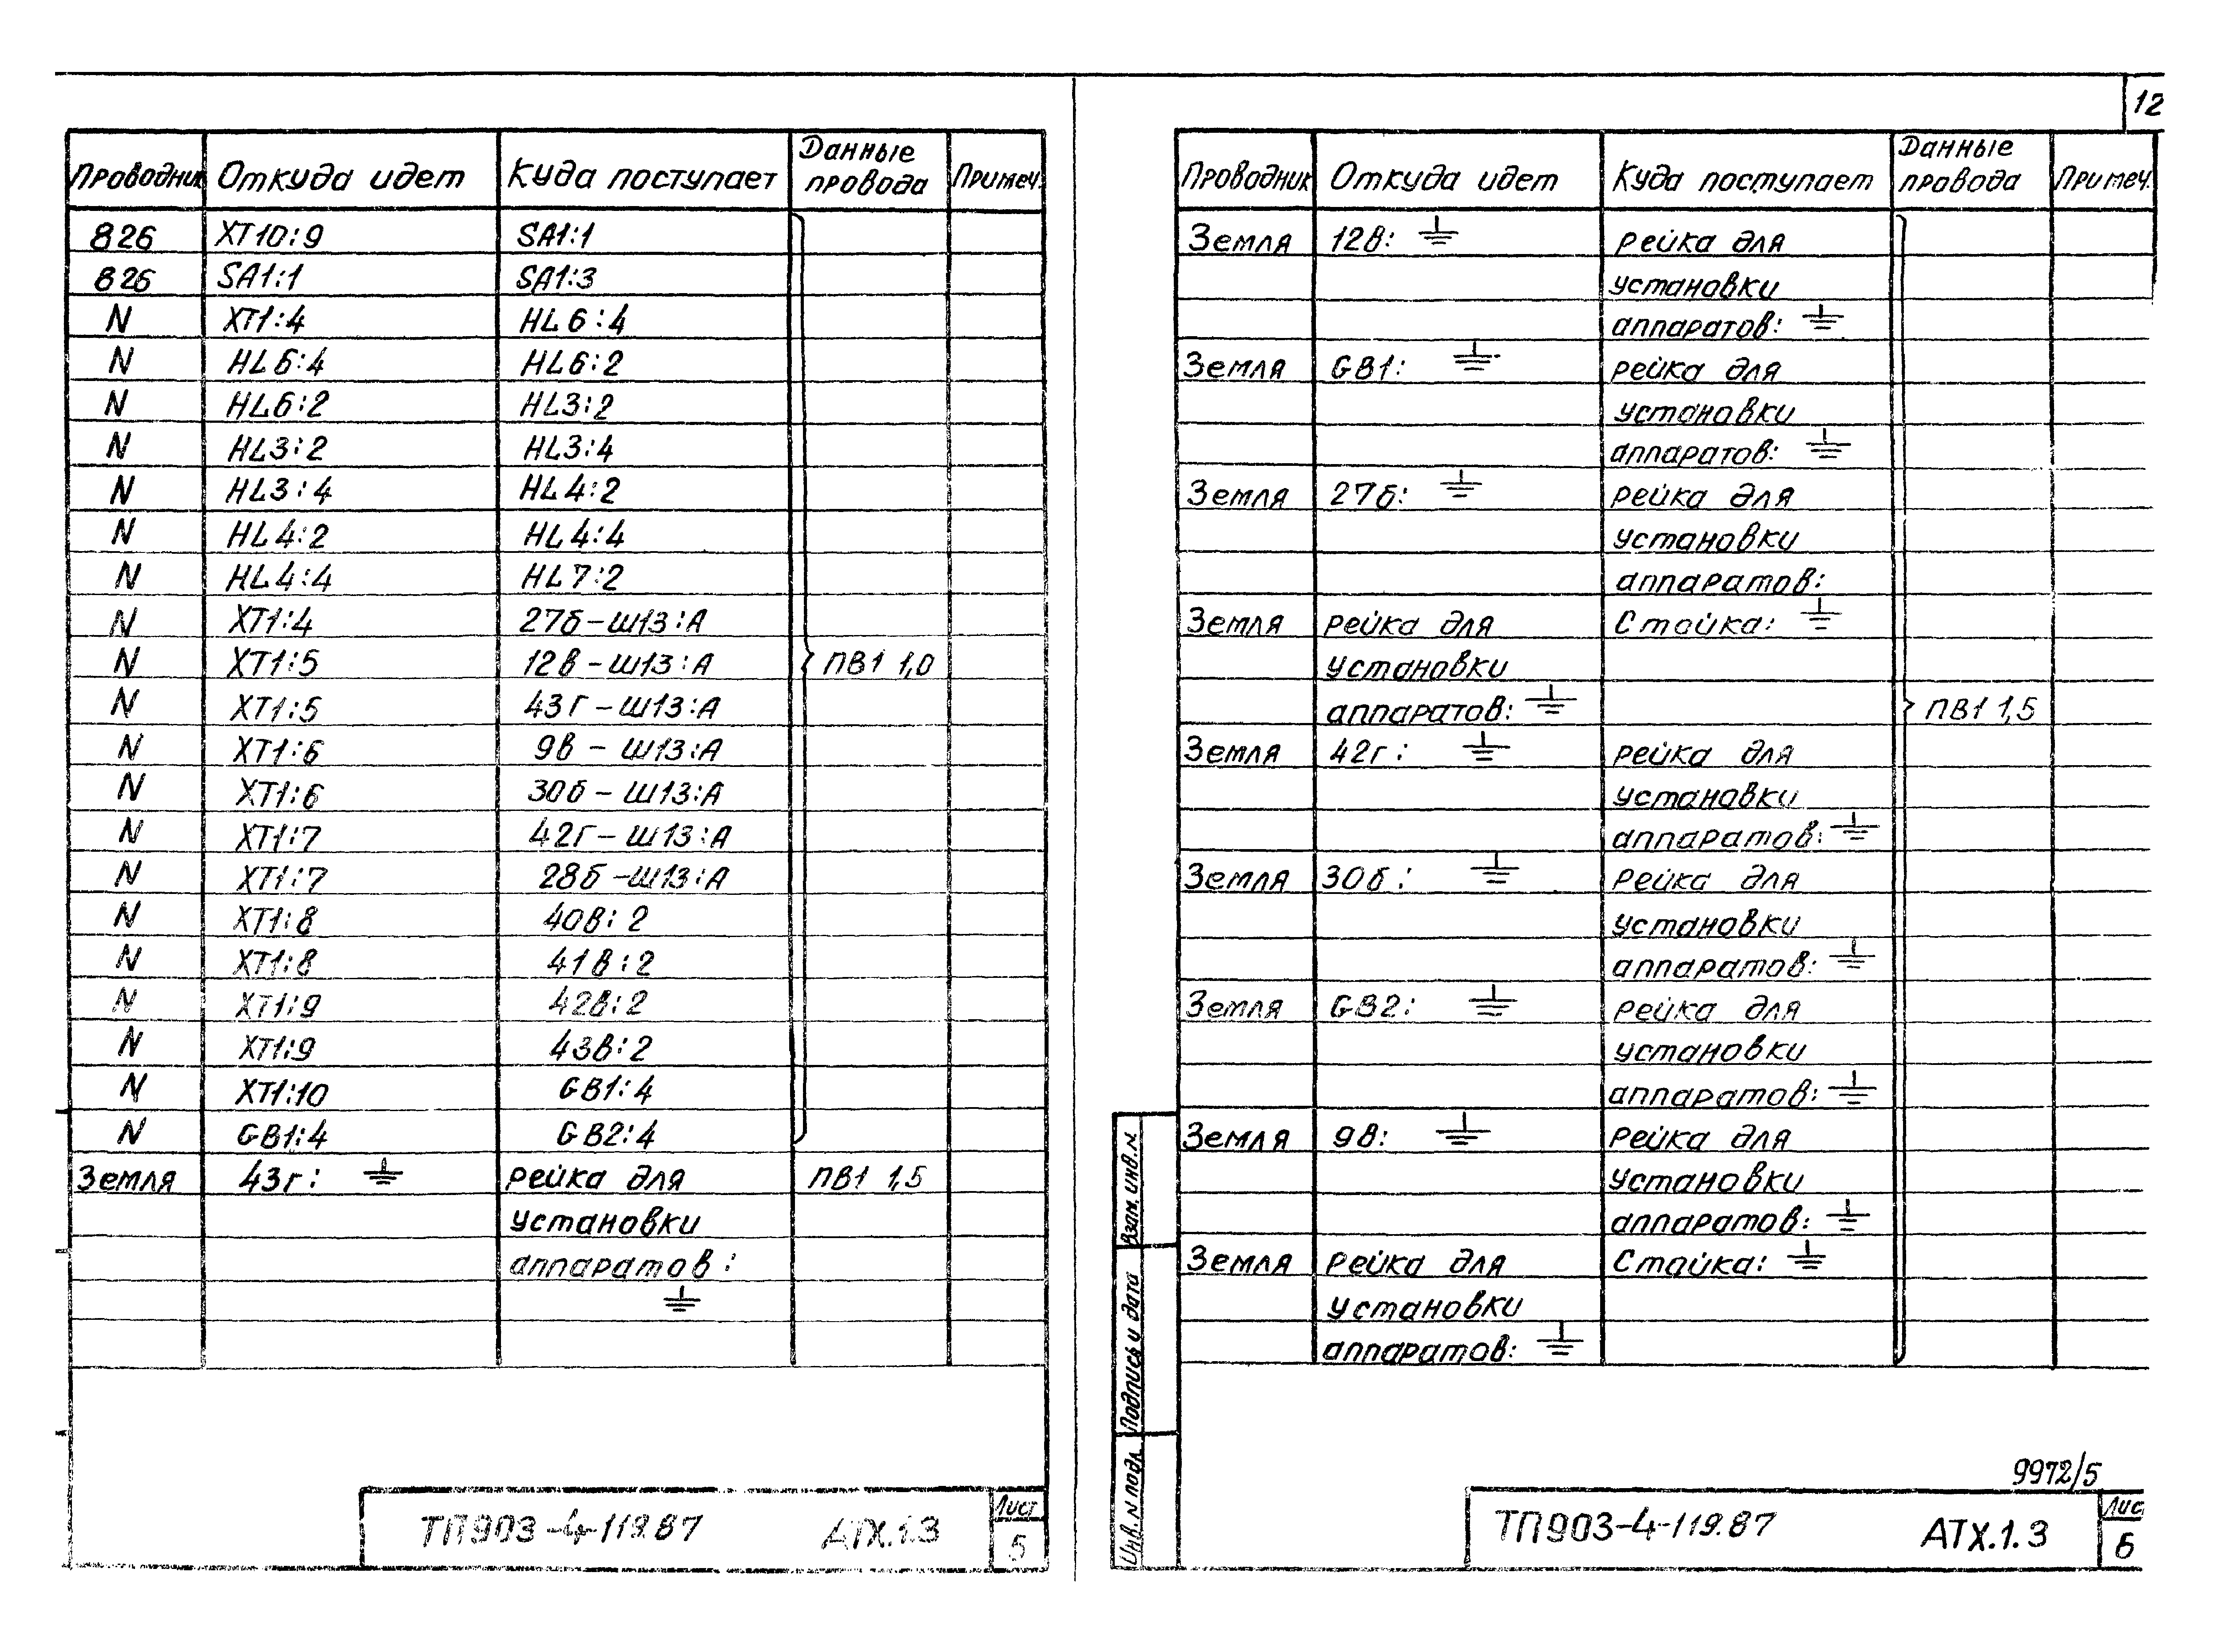 12
Проводник Откуда идет Куда поступает Данные провода Примеч.
826 XT10:9 SA1:1
826 SA1:1 SA1:3
N XT1:4 HL6:4
N HL6:4 HL6:2
N HL6:2 HL3:2
N HL3:2 HL3:4
N HL3:4 HL4:2
N HL4:2 HL4:4
N HL4:4 HL7:2
N XT1:4 27б-Ш13:А
N XT1:5 12в-Ш13:А ПВ1 1,0
N XT1:5 43г-Ш13:А
N XT1:6 9в - Ш13:А
N XT1:6 30б - Ш13:А
N XT1:7 42г- Ш13:А
N XT1:7 28б -Ш13:А
N XT1:8 40в:2
N XT1:8 41в:2
N XT1:9 42в:2
N XT1:9 43в:2
N XT1:10 GB1:4
N GB1:4 GB2:4
Земля 43г: ⏚ рейка для ПВ1 1,5
установки
аппаратов:
⏚
ТП903-4-119.87 АТХ.1.3
Лист
5
Проводник Откуда идет Куда поступает Данные провода Примеч.
Земля 12в: ⏚ рейка для
установки
аппаратов: ⏚
Земля GB1: ⏚ рейка для
установки
аппаратов: ⏚
Земля 27б: ⏚ рейка для
установки
аппаратов:
Земля рейка для Стойка: ⏚
установки
аппаратов: ⏚ ПВ1 1,5
Земля 42г: ⏚ рейка для
установки
аппаратов: ⏚
Земля 30б: ⏚ рейка для
установки
аппаратов: ⏚
Земля GB2: ⏚ рейка для
установки
аппаратов: ⏚
Земля 9в: ⏚ рейка для
установки
аппаратов: ⏚
Земля рейка для Стойка: ⏚
установки
аппаратов: ⏚
Взам. инв. N
Подпись и дата
Инв. N подл.
9972/5
ТП903-4-119.87 АТХ.1.3
Лис
6